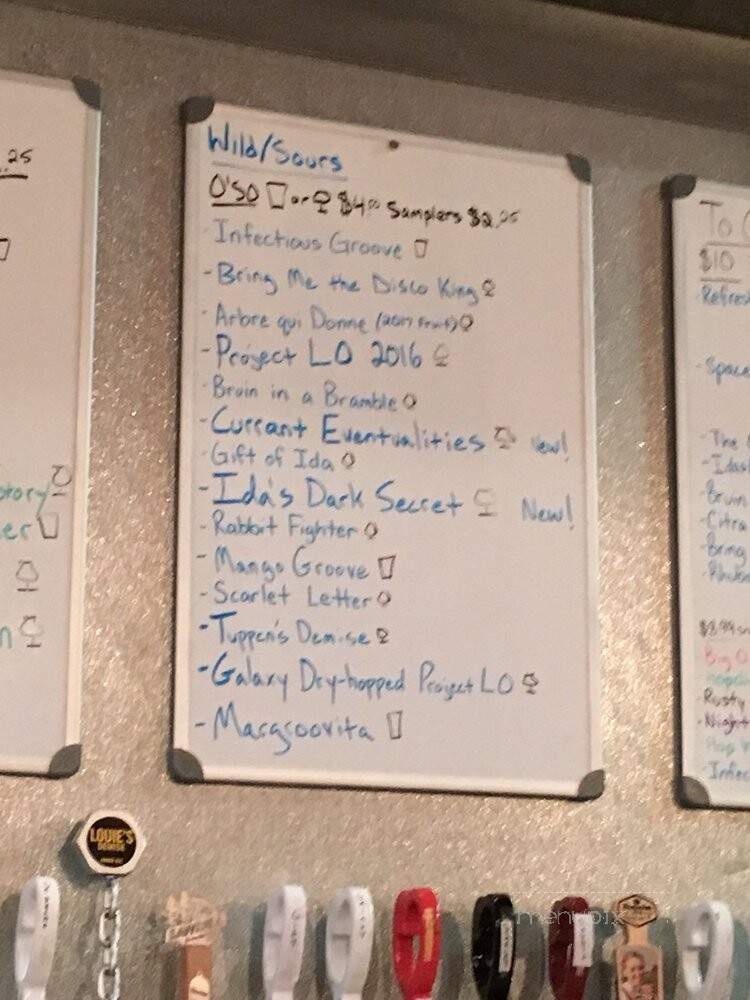 .25
Wild/Sours
O'SO or $4.00 Samplers $2.25
Infectious Groove
- Bring Me the Disco King
- Arbre qui Donne (2017 Fruit)
- Project LO 2016
- Bruin in a Bramble
- Currant Eventualities New!
- Gift of Ida
- Ida's Dark Secret New!
- Rabbit Fighter
- Mango Groove
- Scarlet Letter
- Tuppen's Demise
- Galaxy Dry-hopped Project LO
- Margroovita
To
$10
Refres
- Space
- The
- Idas
- Bruin
- Citra
- Bring
$8.99
Big O
- Rusty
- Night
Hop
- Infec
LOUIE'S
DEMISE
menupix